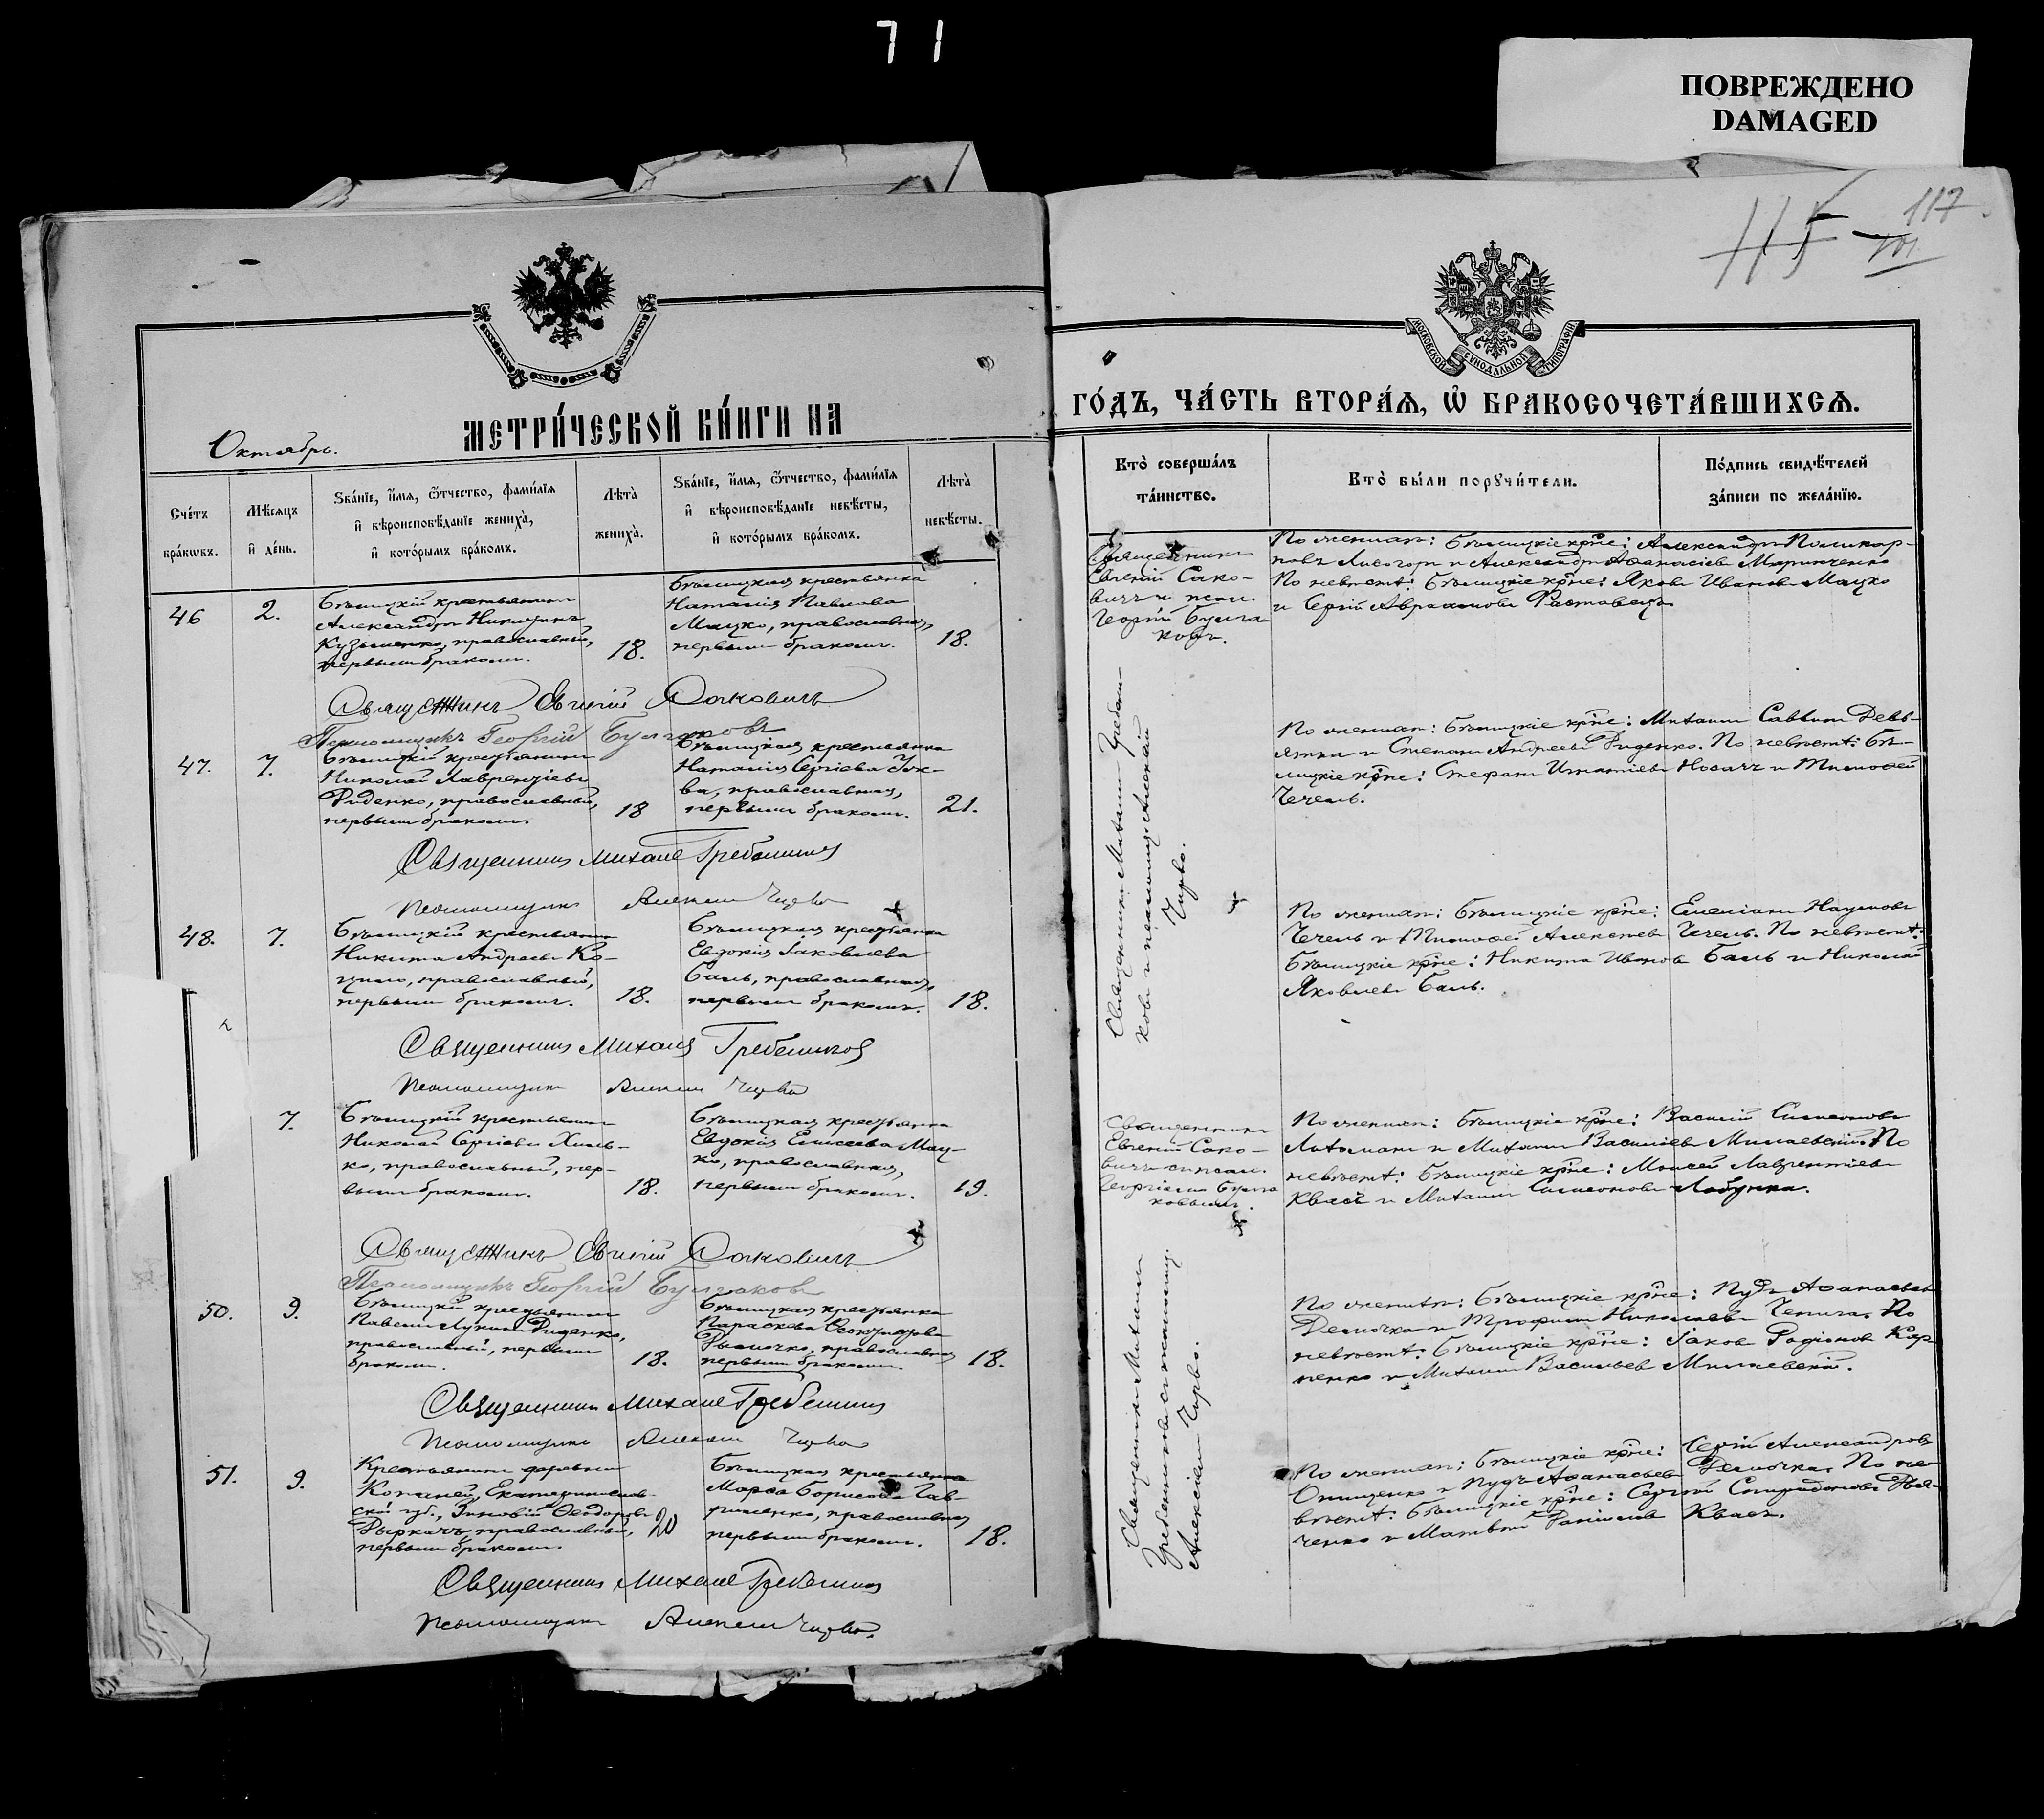 71
ПОВРЕЖДЕНО
DAMAGED
117
115
101
МОСКОВСКОЙ СѴНОДАЛЬНОЙ ТИПОГРАФІИ
МЕТРИ́ЧЕСКОЙ КНИ́ГИ НА
ГО́ДЪ, ЧА́СТЬ ВТОРА́Ѧ, Ѽ БРАКОСОЧЕТА́ВШИХСѦ.
Октябрь.
Сче́тъ
бра́кѡвъ.
Мѣ́сѧцъ
и҆ де́нь.
Ѕва́нїе, и҆́мѧ, ѻ҆́тчество, фами́лїѧ
и҆ вѣроисповѣ́данїе жениха̀,
и҆ кото́рымъ бра́комъ.
Лѣ́та
жениха̀.
Ѕва́нїе, и҆́мѧ, ѻ҆́тчество, фами́лїѧ
и҆ вѣроисповѣ́данїе невѣ́сты,
и҆ кото́рымъ бра́комъ.
Лѣ́та
невѣ́сты.
Кто̀ соверша́лъ
та́инство.
Кто̀ бы́ли порꙋчи́тели.
По́дпись свидѣ́телей
за́писи по жела́нїю.
46
2.
крестьянинъ
Александръ Никитинъ
Кузьменко, православный,
первымъ бракомъ.
18.
крестьянка
Наталія Павлова
Мацко, православная,
первымъ бракомъ.
18.
Священникъ
Евгеній Сако-
вичъ и псал.
Георгій Булга
ковъ.
По женихѣ: Александръ Поликар-
повъ Лисогоръ и Александръ Аѳанасіевъ Маринченко
По невѣстѣ: Яковъ Ивановъ Мацко
и Сергій Авраамовъ
Священникъ Евгеній Саковичъ
Псаломщикъ Георгій Булгаковъ
47.
7.
крестьянинъ
Николай Лаврентіевъ
Руденко, православный,
первымъ бракомъ.
18
крестьянка
Наталія Сергіева
православная,
первымъ бракомъ.
21.
Священникъ Михаилъ Гребенни-
ковъ и псаломщ. Алексій
Чурво.
По женихѣ: Михаилъ Саввинъ Девь-
яткинъ и Степанъ Андреевъ Руденко. По невѣстѣ: Бѣ-
лицкіе Стефанъ Игнатіевъ Носачъ и Тимоѳей
Чечель.
Священникъ Михаилъ Гребенниковъ
Псаломщикъ Алексій
48.
7.
крестьянинъ
Никита Андреевъ Ко-
православный,
первымъ бракомъ.
18.
крестьянка
Евдокія Іаковлева
Баль, православная,
первымъ бракомъ.
18.
По женихѣ: Емеліанъ Наумовъ
Чечель и Тимоѳей Алексѣевъ Чечель. По невѣстѣ:
Никита Ивановъ Баль и Николай
Яковлевъ Баль.
Священникъ Михаилъ Гребенниковъ
Псаломщикъ Алексій
7.
крестьянинъ
Николай Сергіевъ Хиль-
ко, православный, пер-
вымъ бракомъ.
18.
крестьянка
Евдокія Елисеева Мац-
ко, православная,
первымъ бракомъ.
19.
Священникъ
Евгеній Сако-
вичъ съ псал.
Георгіемъ Булга
ковымъ.
По женихѣ: Василій Симеоновъ
и Михаилъ Василіевъ Милаевскій. По
невѣстѣ: Моисей Лаврентіевъ
Квасъ и Михаилъ Симеоновъ Лобунка.
Священникъ Евгеній Саковичъ
Псаломщикъ Георгій Булгаковъ
50.
9.
крестьянинъ
Павелъ Лукинъ Руденко,
православный, первымъ
бракомъ.
18.
крестьянка
Параскева
православная
первымъ бракомъ.
18.
Священникъ Михаилъ
Гребенниковъ съ псаломщ.
Алексіемъ Чурво.
По женихѣ: Пудъ Аѳанасьевъ
Демочка и Трофимъ Николаевъ Чепига. По
невѣстѣ: Іаковъ Родіоновъ Кар
пенко и Михаилъ Васильевъ Милаевскій.
Священникъ Михаилъ Гребенниковъ
Псаломщикъ Алексій
51.
9.
Крестьянинъ деревни
Копаней, Екатеринослав-
ской губ., Зиновій Ѳеодоровъ
православный,
первымъ бракомъ.
20
крестьянка
Марѳа Борисова Гав-
риленко, православная
первымъ бракомъ.
18.
По женихѣ: Сергій Александровъ
Онищенко и Пудъ Аѳанасьевъ Демочка. По не-
вѣстѣ: Сергій Спиридоновъ
ченко и Матвѣй Квасъ.
Священникъ Михаилъ Гребенниковъ
Псаломщикъ Алексій